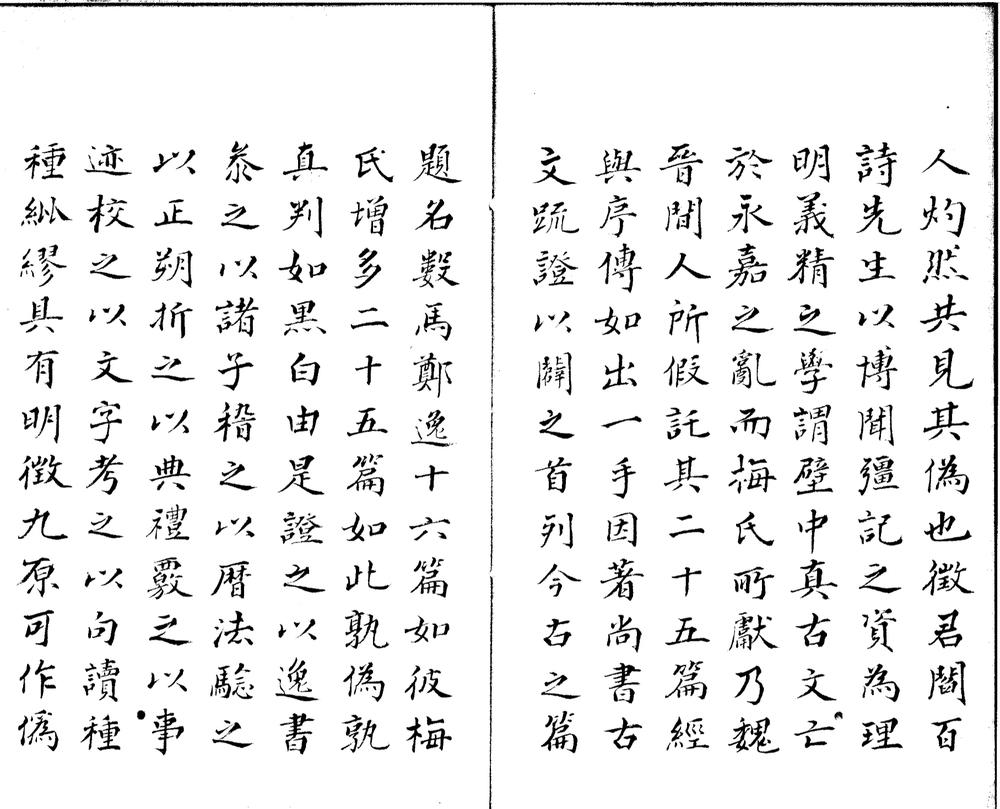 人灼然共見其偽也徵君閻百
詩先生以博聞彊記之資為理
明義精之學謂壁中真古文亡
於永嘉之亂而梅氏所獻乃魏
晉間人所假託其二十五篇經
與序傳如出一手因著尚書古
文疏證以闢之首列今古之篇
題名數馬鄭逸十六篇如彼梅
氏增多二十五篇如此孰偽孰
真判如黑白由是證之以逸書
叅之以諸子稽之以曆法驗之
以正朔折之以典禮覈之以事
迹校之以文字考之以句讀種
種紕繆具有明徵九原可作偽